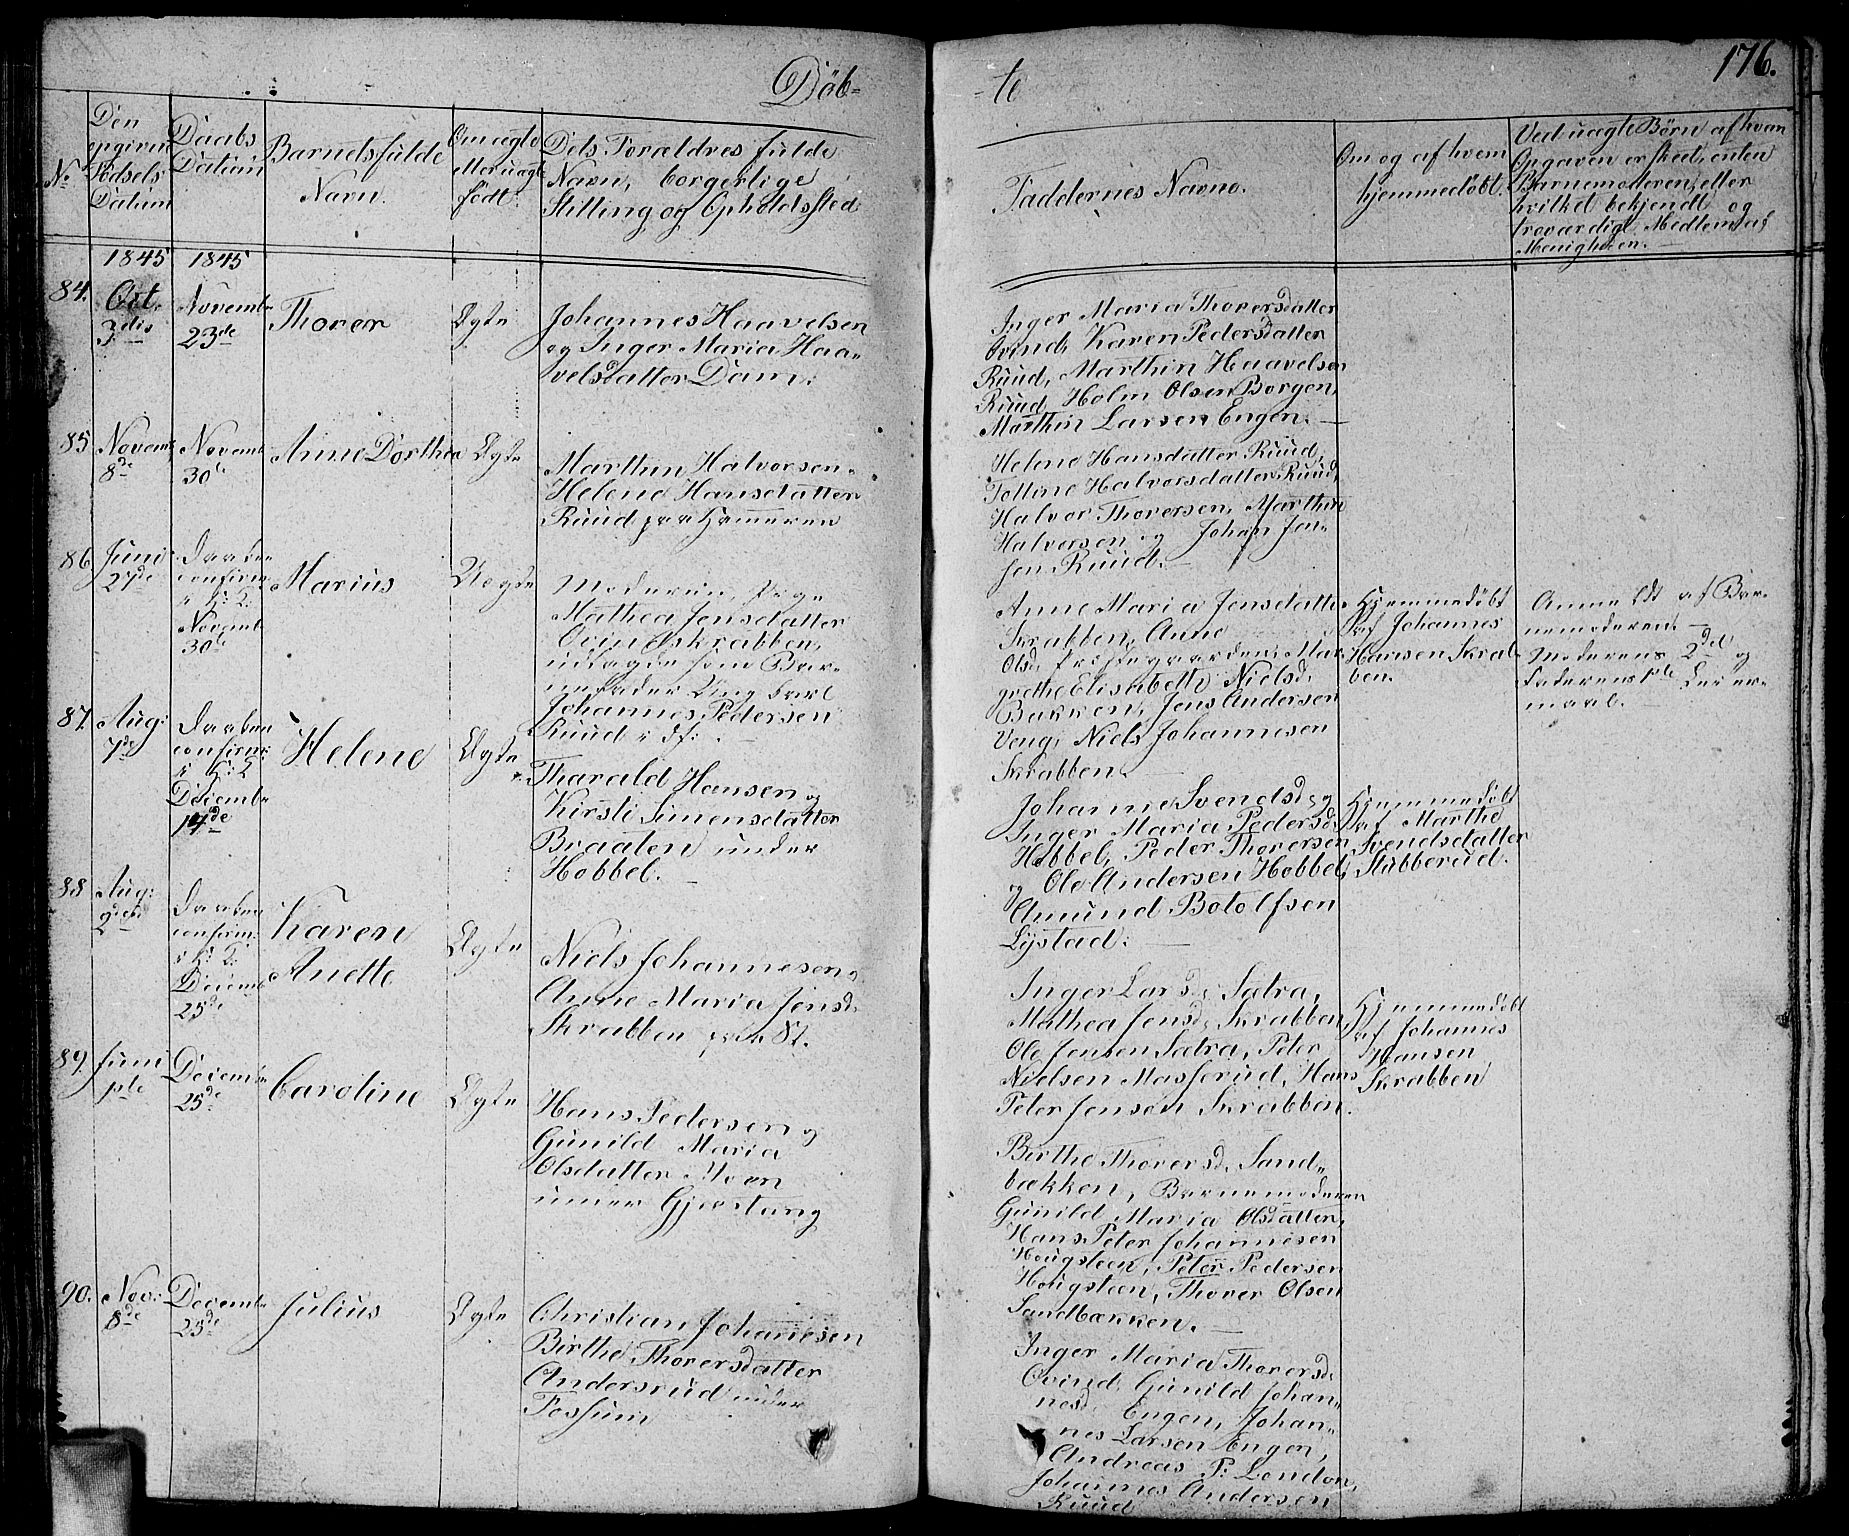 Döb-
-te
176.
No
Den
opgivne
Födsels
Datum
Daabs
Datum
Barnets fulde
Navn.
Om ægte
eller uægte
födt.
Dets Forældres fulde
Navn, borgerlige
Stilling og Opholdssted
Faddernes Navne.
Om og af hvem
hjemmedöbt.
Ved uægte Børn af hvem
Opgaven er sked, enten
Barnemoderen, eller
hvilket bekjendt og
troværdigt Medlem af
Menigheden.
1845
1845
84.
Oct.
3die
Novemb
23de
Thorer
Ægte
Johannes Haavelsen
og Inger Maria Haa-
velsdatter Dam.
Inger Maria Thorersdatter
Ovind, Karen Pedersdatter
Ruud, Marthin Haavelsen
Ruud, Holm Olsen Borgen,
Marthin Larsen Engen.
85
Novem:
8de
Novemb
30te
Anne Dorthea
Ægte
Marthin Halvorsen
Helene Hansdatter
Ruud paa Hammeren
Helene Hansdatter Ruud,
Halvorsdatter Ruud,
Halvor Thorersen, Marthin
Halvorsen og Johan Jen-
sen Ruud.
86
Juni
27de
Daaben
confirm:
i K: K:
Novemb
30te
Marius
Uægte
Moderen, Pige
Mathea Jensdatter
Ovindskrabben,
udlagde som Bar-
nefader Ung karl
Johannes Pedersen
Ruud
Anne Maria Jensdatter
Skrabben, Anne
Olsd. Prestegaarden, Mar-
grethe Elisabeth Nielsd.
Bakken, Jens Andersen
Veng, Niels Johannesen
Skrabben.
Hjemmedöbt
af Johannes
Hansen Skrab-
ben.
Anmeldt af Bar-
nemoderen.
Moderens 2det og
Faderens 1ste Leier-
maal.
87.
Aug:
7de
Daaben
confirm:
i K: K
Decemb
14de
Helene
Ægte
Tharald Hansen og
Kirsti Simensdatter
Braaten under
Hobbel.
Johanne Svendsd. og
Inger Maria Pedersd.
Hobbel, Peder Thorersen
og Ole Andersen Hobbel,
Amund Botolfsen
Lystad:
Hjemmedöbt
af Marthe
Svendsdatter
Stubberud.
88
Aug:
2den
Daaben
confirm:
i K: K:
Decemb
25de
Karen
Anette
Ægte
Niels Johannesen og
Anne Maria Jensd.
Skrabben
Inger Larsd. Sætra,
Mathea Jensd. Skrabben,
Ole Jensen Sætra, Peter
Nielsen Masserud, Hans
Peter Jensen Skrabben.
Hjemmedöbt
af Johannes
Hansen
Skrabben
89.
Juni
1ste
Decemb
25de
Caroline
Ægte
Hans Pedersen og
Gunild Maria
Olsdatter Moen
under Gjerstang
Birthe Thorersd. Sand-
bækken, Barnemoderen
Gunild Maria Olsdatter,
Hans Peter Johannesen
Hougsteen, Peter Pedersen
Hougsteen, Thorer Olsen
Sandbækken.
90.
Nov:
8de
Decemb
25de
Julius
Ægte
Christian Johannesen
Birthe Thorersdatter
Andersrud under
Fossum
Inger Maria Thorersd.
Ovind, Gunild Johan-
nesd. Engen, Johan-
nes Larsen Engen,
Andreas P: London,
Johannes Andersen
Ruud